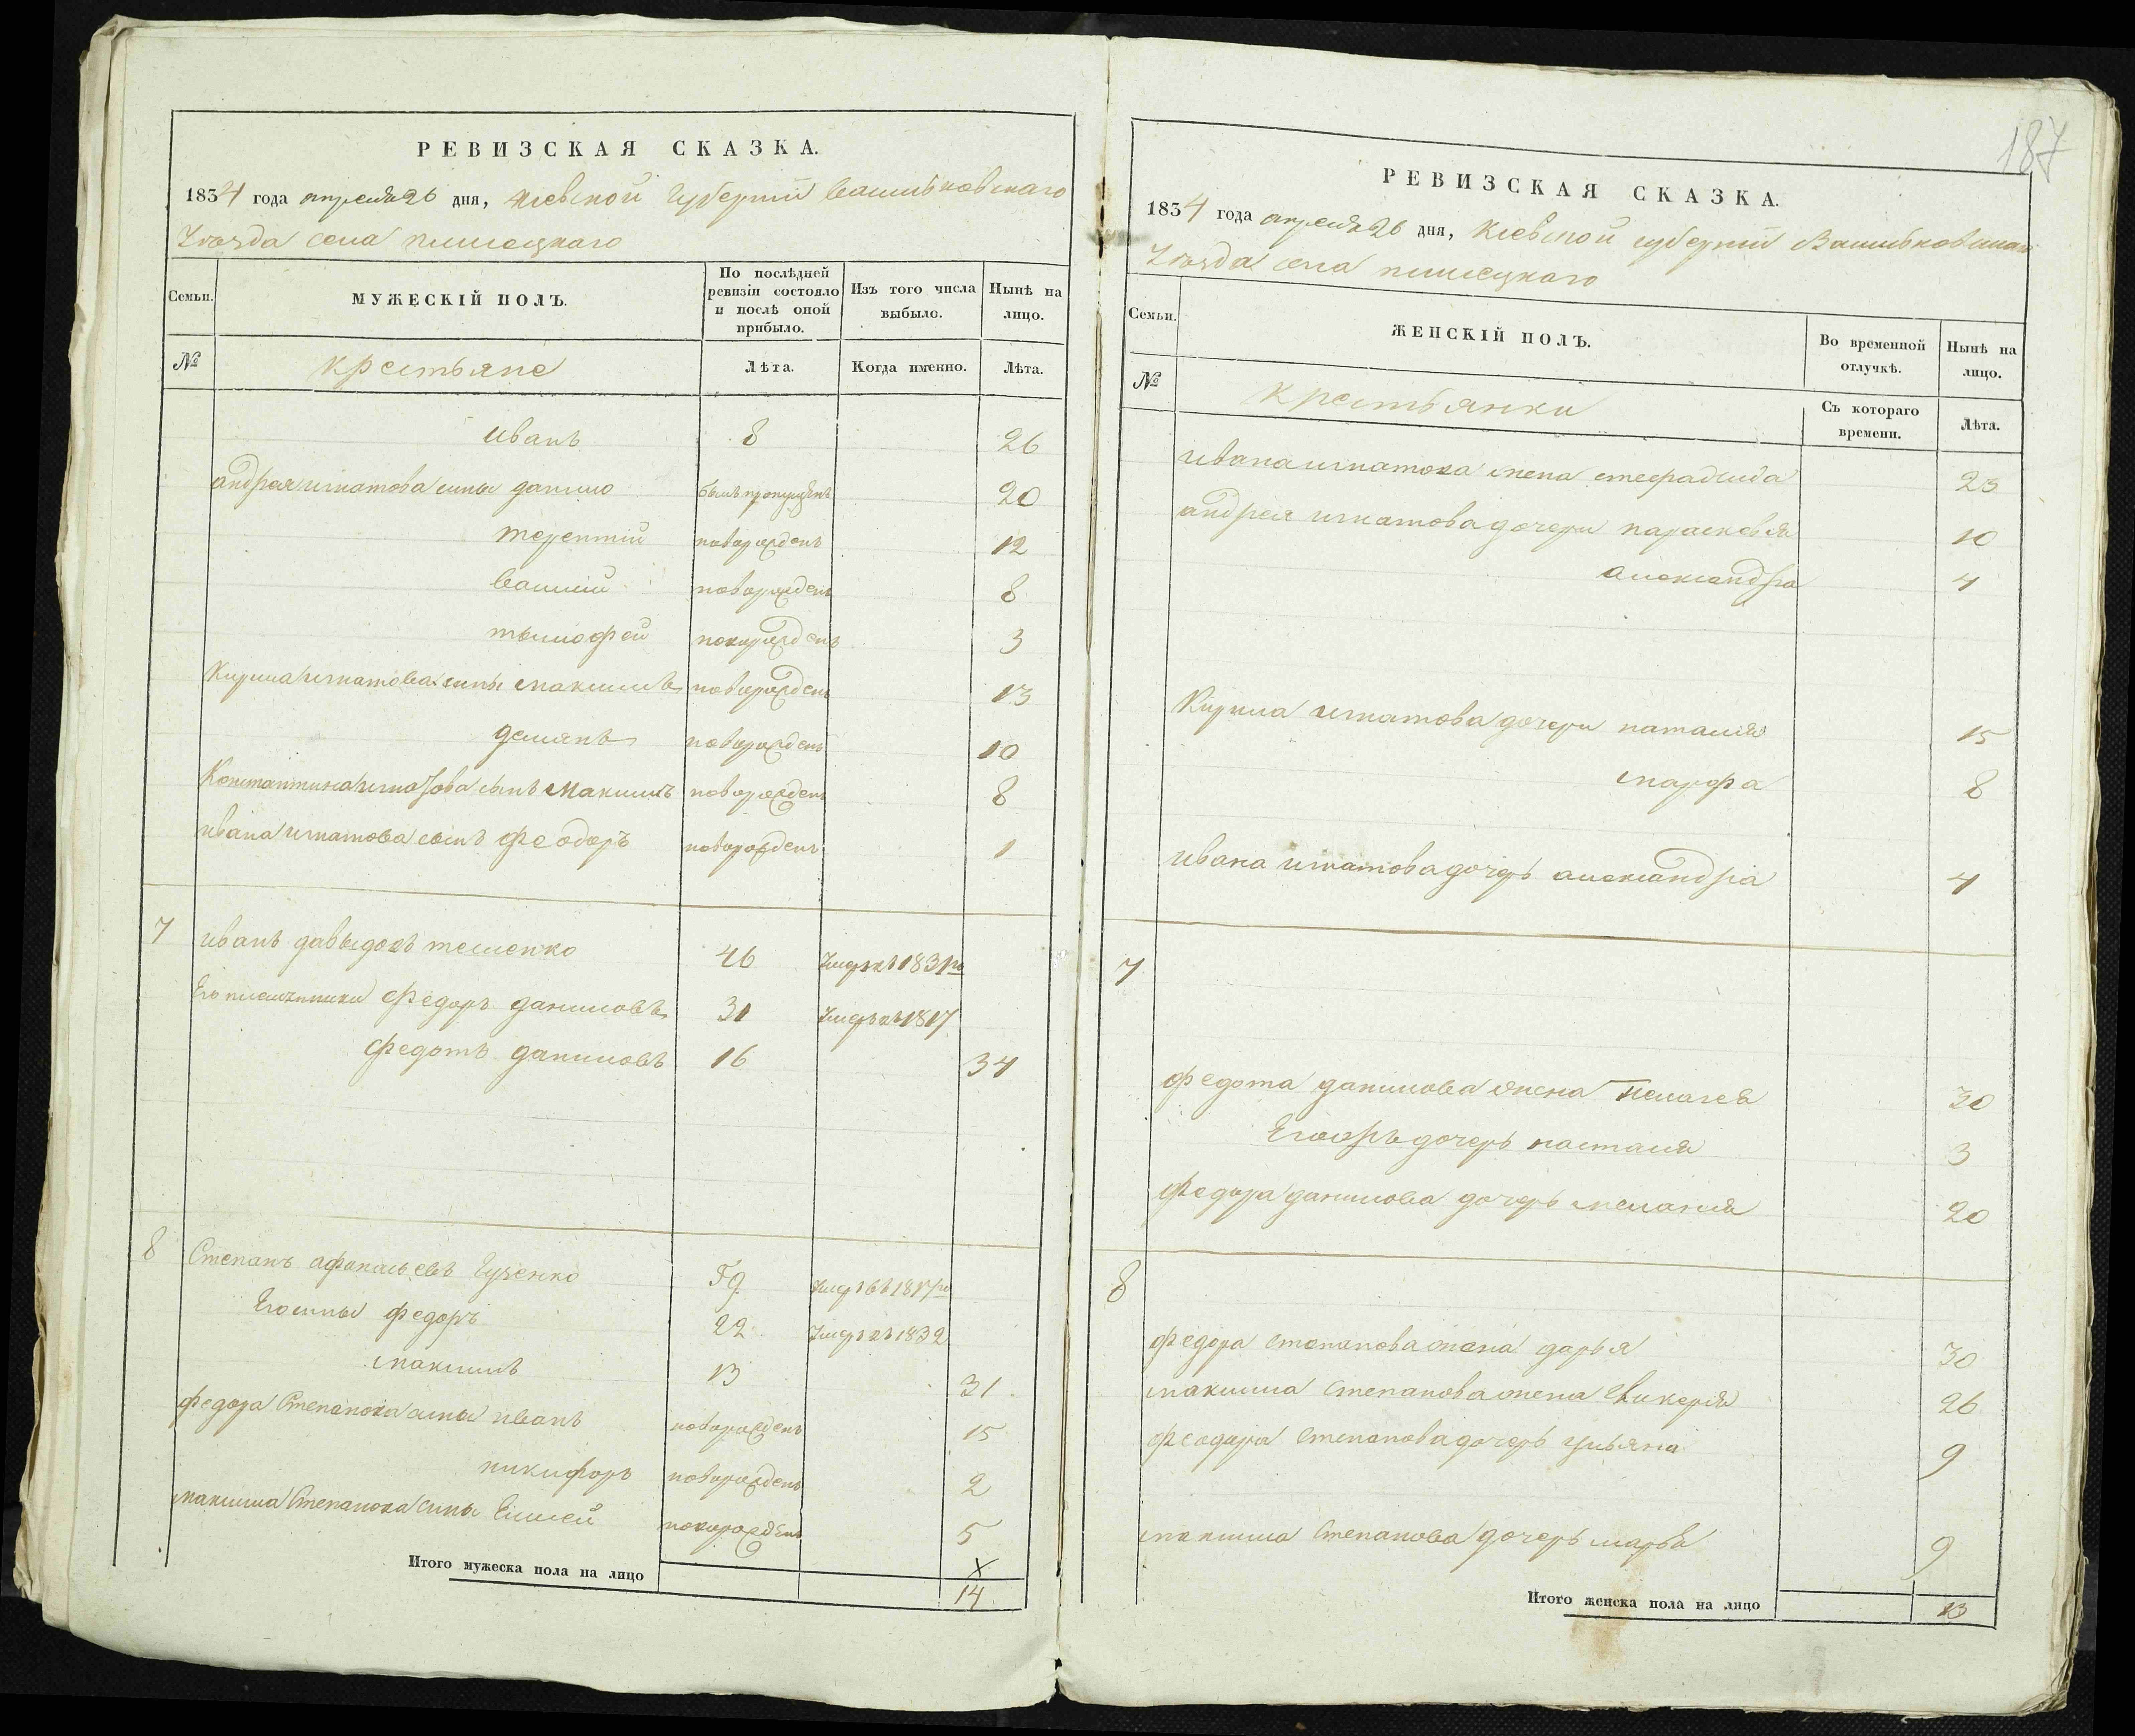 РЕВИЗСКАЯ СКАЗКА.
1834 года апреля 26 дня, Киевской Губернии Васильковскаго
Уезда села пилиецкаго
Семьи.
МУЖЕСКІЙ ПОЛЪ.
По послѣдней ревизіи состояло и послѣ оной прибыло.
Изъ того числа выбыло.
Нынѣ на лицо.
№
крестьяне
Лѣта.
Когда именно.
Лѣта.
иванъ 8 26
андрея игнатова сины данило былъ пропущенъ 20
терентий новорожденъ 12
василий новорожденъ 8
тимофей новорожденъ 3
Кирила игнатова сины максимъ новорожденъ 13
демянъ новорожденъ 10
Константина игнатова сынъ Максимъ новорожденъ 8
ивана игнатова сынъ феодоръ новорожденъ 1
7 иванъ давыдовъ теленко 46 Умеръ въ 1831го
Его племянники федоръ даниловъ 31 Умеръ въ 1817
федотъ даниловъ 16 34
8 Степанъ афанасьевъ Гученко 59 Умеръ въ 1817го
Его сины федоръ 22 Умеръ въ 1832
максимъ 13 31
федора Степанова сины иванъ новорожденъ 15
никифоръ новорожденъ 2
максима Степанова сины Елисей новорожденъ 5
Х
Итого мужеска пола на лицо 14
187
РЕВИЗСКАЯ СКАЗКА.
1834 года апреля 26 дня, Киевской губернии Васильковскаго
Уезда села пилиецкаго
Семьи.
ЖЕНСКІЙ ПОЛЪ.
Во временной отлучкѣ.
Нынѣ на лицо.
№
крестьянки
Съ котораго времени.
Лѣта.
ивана игнатова жена 23
андрея игнатова дочери параскевия 10
александра 4
Кирила игнатова дочери наталия 15
марфа 8
ивана игнатова дочерь александра 4
7
федота данилова жена Пелагея 30
Его дочерь наталия 3
Федора данилова дочерь мелания 20
8
федора степанова жена дарья 30
максима степанова жена 26
феодора степанова дочерь ульяна 9
максима Степанова дочерь марья 9
Итого женска пола на лицо 13